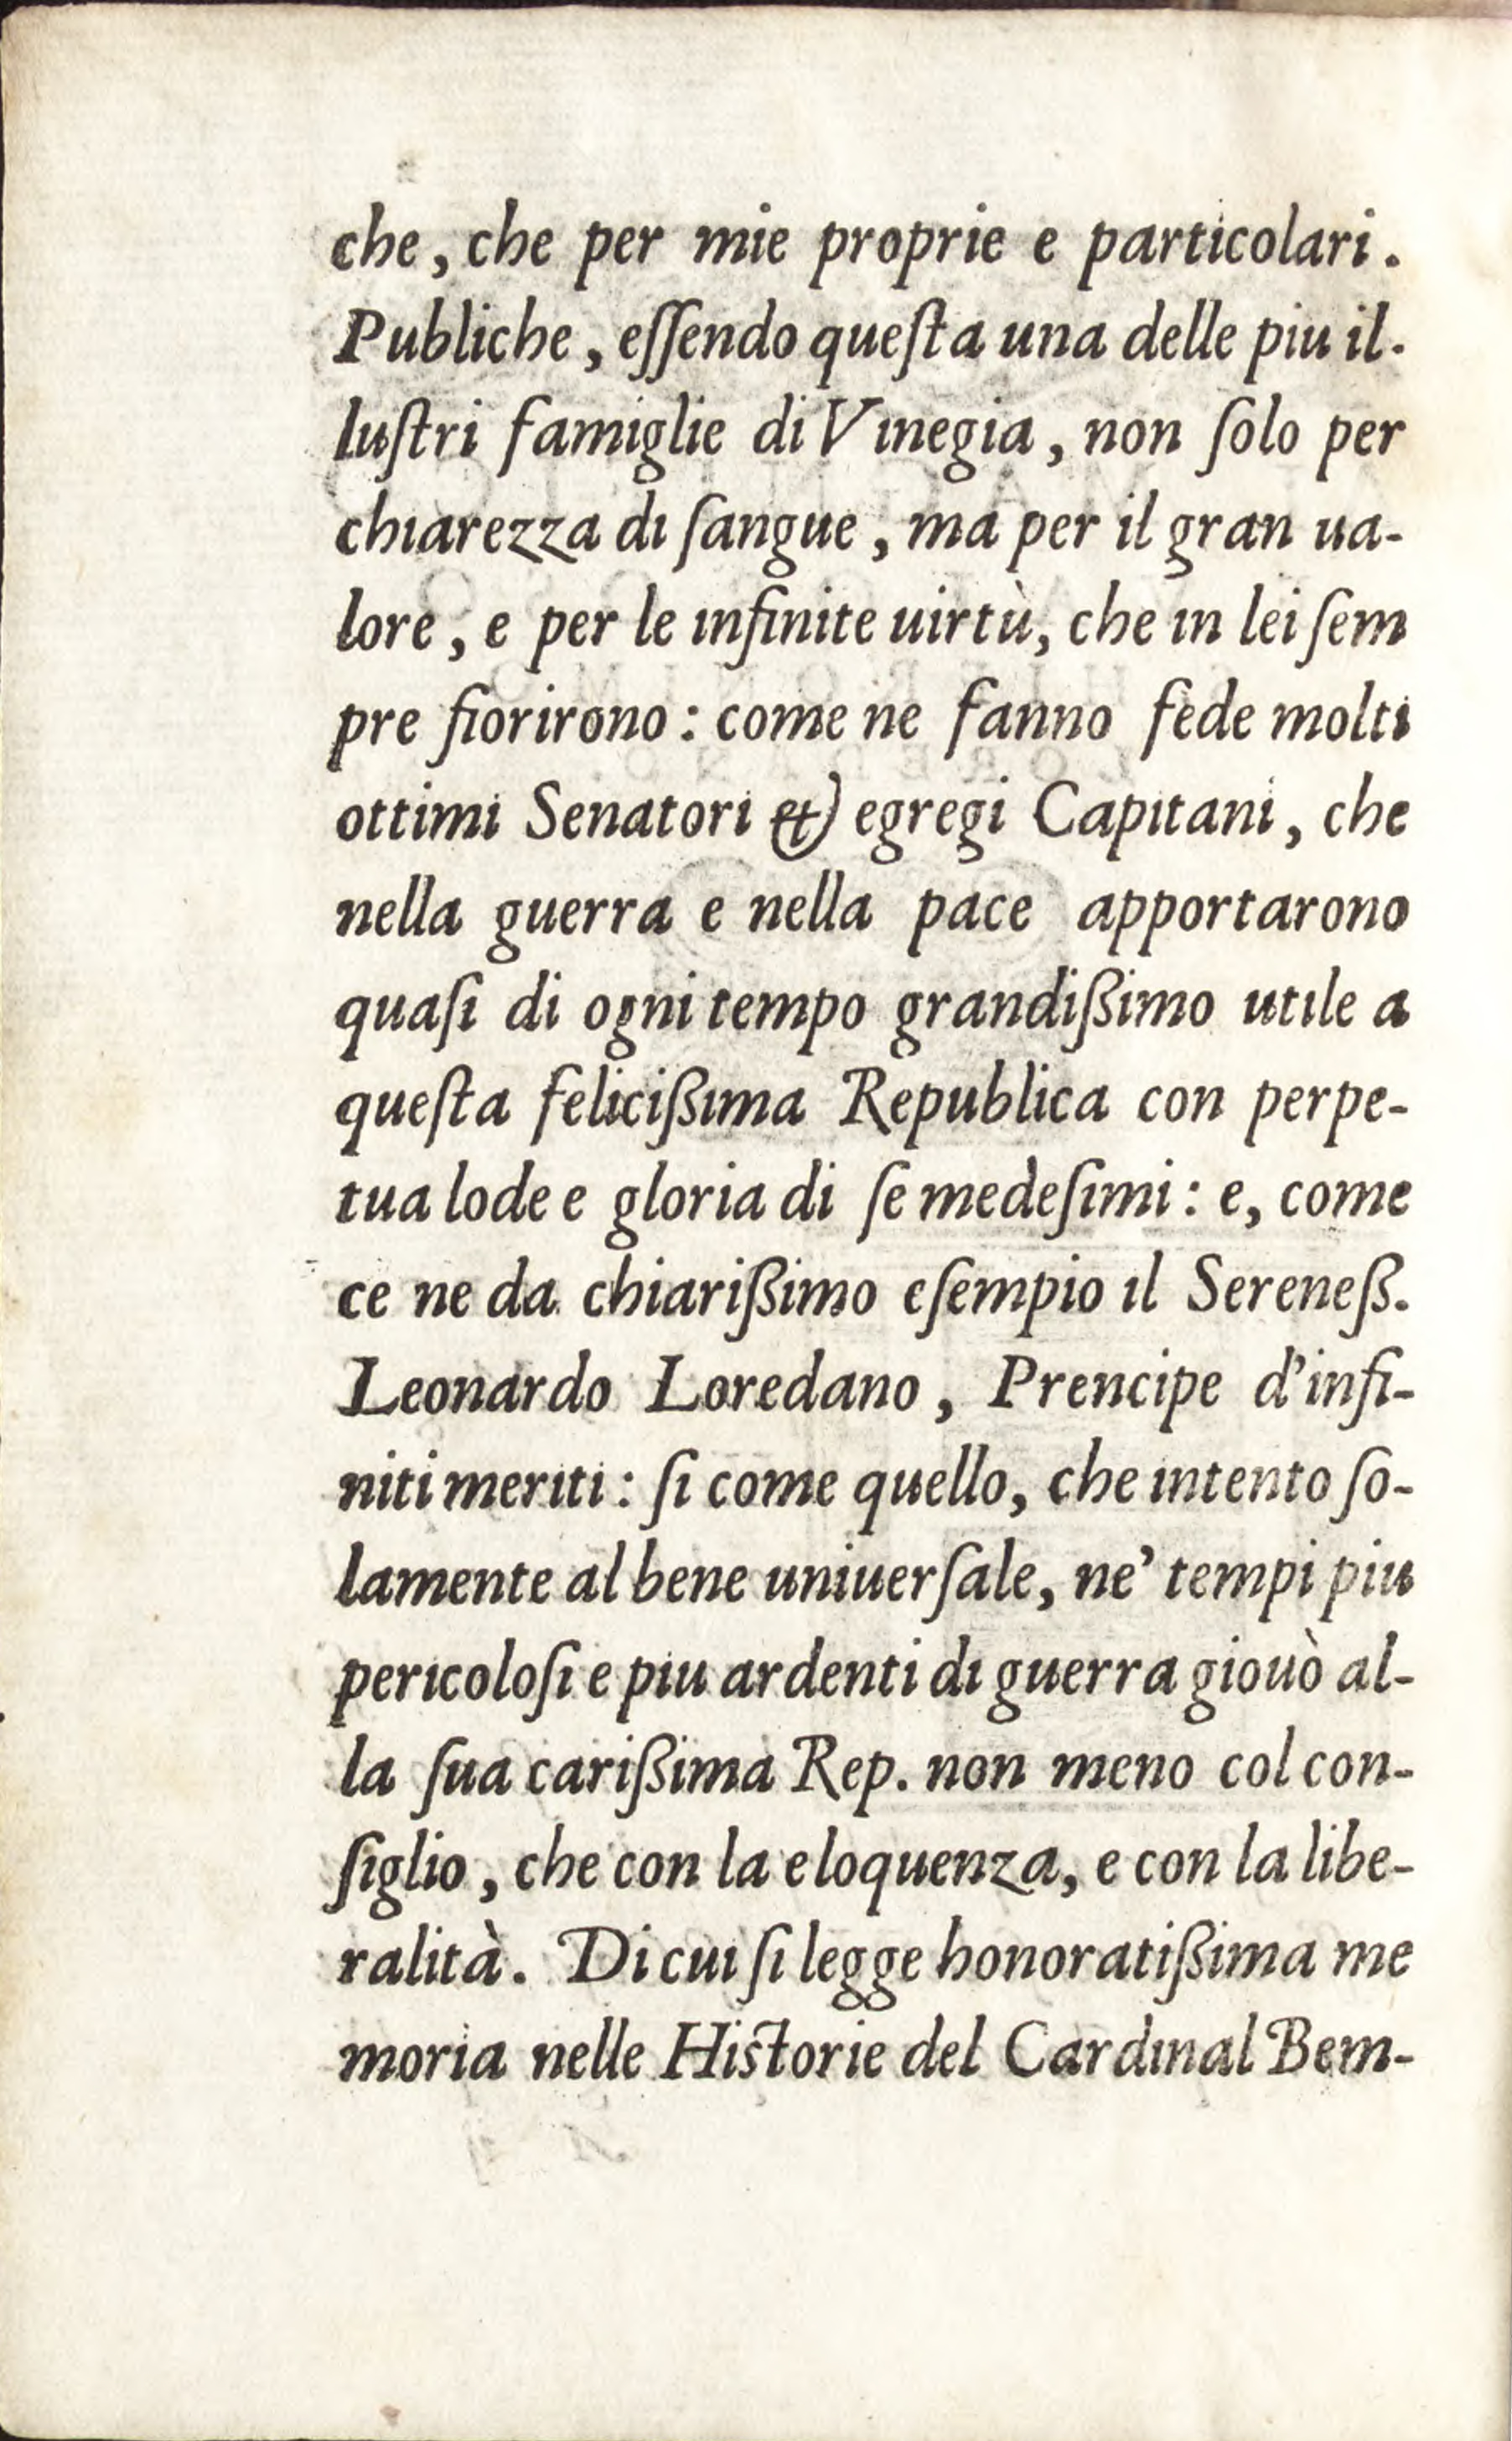 che, che per mie proprie e particolari.
Publiche, eſſendo queſta una delle piu il-
luſtri famiglie di Vinegia, non ſolo per
chiarezza di ſangue, ma per il gran ua-
lore, e per le infinite uirtù, che in lei ſem
pre fiorirono: come ne fanno fede molti
ottimi Senatori & egregi Capitani, che
nella guerra e nella pace apportarono
quaſi di ogni tempo grandißimo utile a
queſta felicißima Republica con perpe-
tua lode e gloria di ſe medeſimi: e, come
ce ne da chiarißimo eſempio il Sereneß.
Leonardo Loredano, Prencipe d'infi-
niti meriti: ſi come quello, che intento ſo-
lamente al bene uniuerſale, ne' tempi piu
pericoloſi e piu ardenti di guerra giouò al-
la ſua carißima Rep. non meno col con-
ſiglio, che con la eloquenza, e con la libe-
ralità. Di cui ſi legge honoratißima me
moria nelle Hiſtorie del Cardinal Bem-